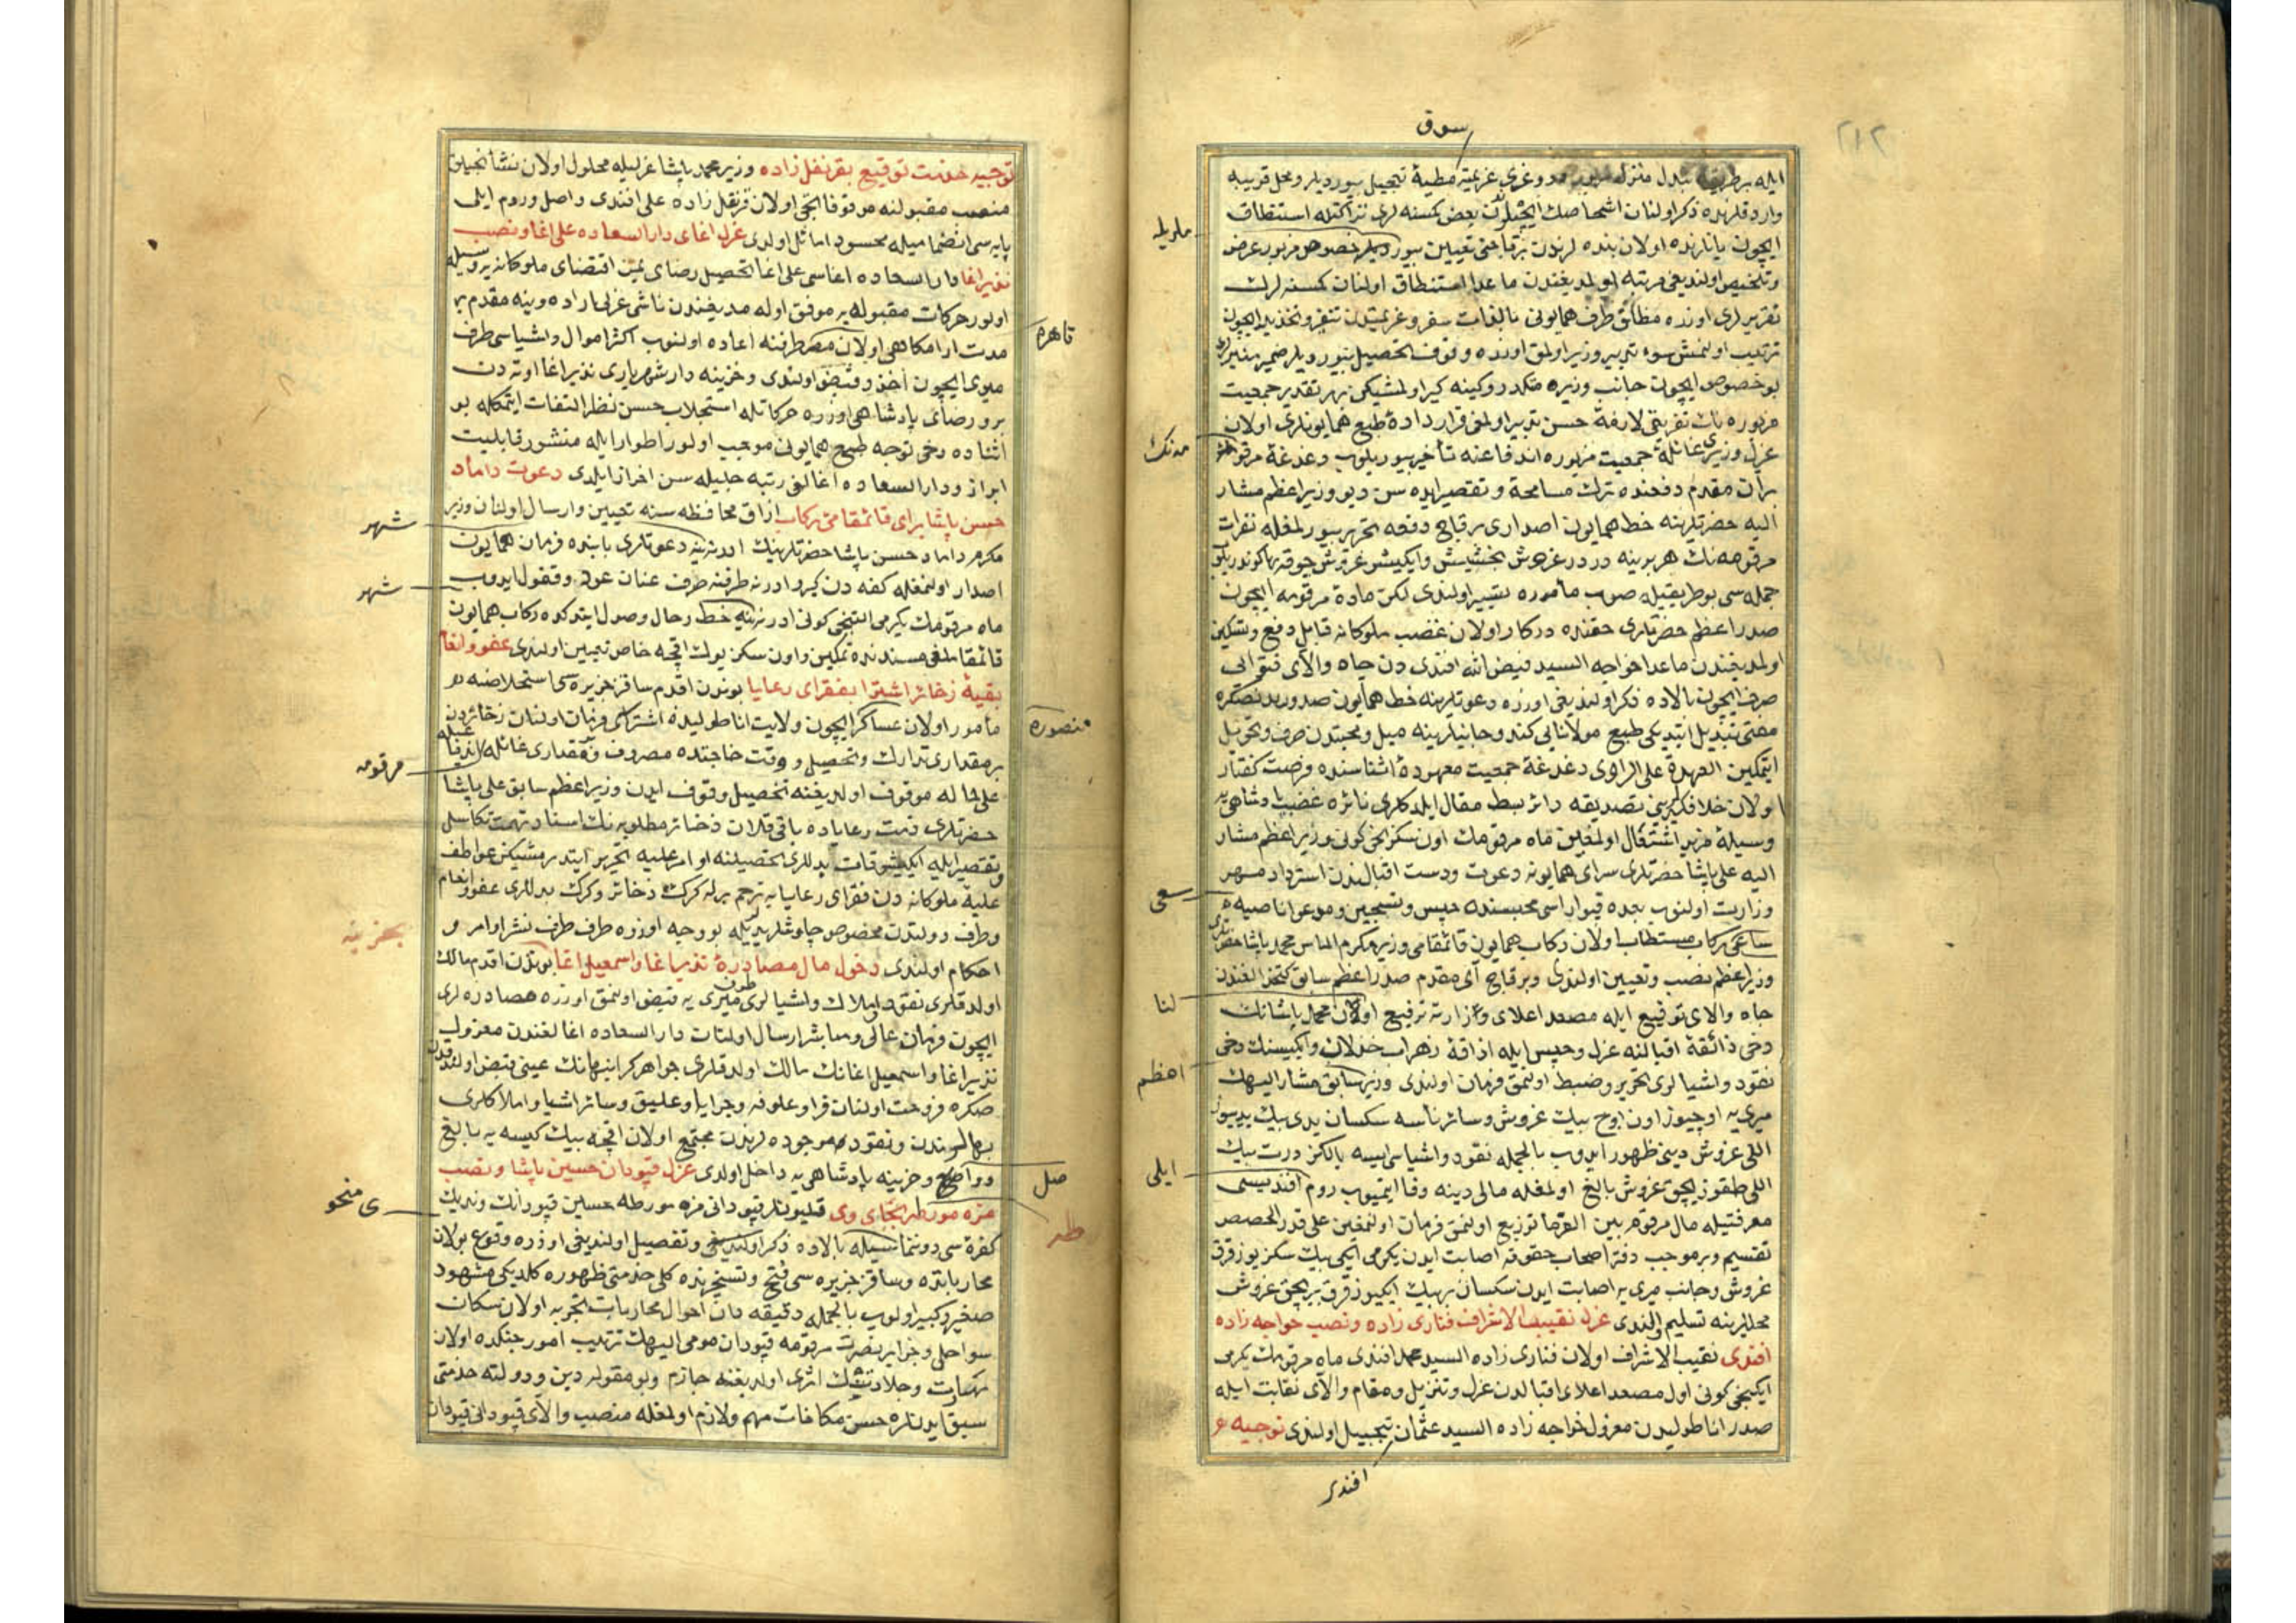 سوق
ايله برطريقه تبدل منزل
وارد قلرنده ذكر اولنان اشخاصك ايچلرندن بعض كسنه لرى نزاكتله استنطاق
ايچون يانلرنده اولان بنده لرندن برقاجنى تعيين بيورديلر خصوص مزبور عرض
وتلخيص اولنديغى مرتبه اولمديغندن ماعدا استنطاق اولنان كسنه لرك
تقريرلرى اوزره مطلق طرف همايونى بالذات سفر وعزيمتدن تنفير وتحذير ايچون
ترتيب اولنمش سوء تدبير وزير اولمق اوزره وقوف تحصيل بيورديلر ضمير منيرلرى
بو خصوص ايچون جانب وزيره مكدر وكينه كير اولمشيكن بهر تقدير جمعيت
مزبوره نك تفريقى لازمۀ حسن تدبير اولمغى قرار دادۀ طبع همايونلرى اولان
عزل وزيرى غائلۀ جمعيت مزبوره اندفاعنه تأخير بيوريلوب دغدغۀ مرقومه
بر آن مقدم دفعنده ترك مسامحه وتقصير ايده سن ديو وزير اعظم مشار
اليه حضرتلرينه خط همايون اصدارى برقاج دفعه تحرير بيورلمغله نفرات
مرقومه نك هر برينه دردر غروش بخشيش وايكيشر غروش چوقه بها كوندريلوب
جمله سى بو طريقيله صوب مأموره تسيير اولندى لكن مادۀ مرقومه ايچون
صدر اعظم حضرتلرى حقنده دركار اولان غضب ملوكانه قابل دفع وتسكين
اولمديغندن ماعدا خواجه السيد فيض الله افندى دن جاه والاى فتوالى
صرف ايچون بالاده ذكر اولنديغى اوزره دعوتلرينه خط همايون صدورندنصكره
مفتى تبديل ايتديكى طبع مولانايى كندو جانبلرينه ميل ومحبتدن صرف وتحويل
ايتمكين العهدة على الراوى دغدغۀ جمعيت معهوده اثناسنده فرصت كفتار
اولان خلافكيرينى تصديقه دائر بسط مقال ايلدكلرى نائره غضب پادشاهى يه
وسيلۀ مزيد اشتعال اولمغين ماه مرقومك اون سكزنجى كونى وزير اعظم مشار
اليه على پاشا حضرتلرى سراى همايونه دعوت ودست اقبالندن استرداد مهر
وزارت اولنوب بعده قپوارسى محبسنده حبس وتسجين وموعو اناصيه
ساعى ركاب مستطاب اولان ركاب همايون قائمقامى وزير مكرم الماس محمد پاشا حضرتلرى
وزير اعظم نصب وتعيين اولندى وبرقاج آى مقدم صدر اعظم سابق كتخدالغندن
جاه والاى توقيع ايله مصعد اعلاى وزارته ترفيع اولنان محمد پاشانك
دخى ذائقۀ اقبالنه عزل وحبس ايله اذاقۀ زهراب خذلان وايكيسنك دخى
نقود واشيالرى تحرير وضبط اولنمق فرمان اولندى وزير سابق مشار اليهك
ميرى يه اوچيوز اون اوچ بيك غروش وسائر ناسه سكسان يدى بيك يديوز
اللى غروش دينى ظهور ايدوب بالجمله نقود واشياسى ايسه يالكز درت بيك
اللى طقوز بچق غروش بالغ اولمغله مالى دينه وفا ايتميوب روم افنديسى
معرفتيله مال مرقوم بين الغرما توزيع اولنمق فرمان اولنمغين على قدر الحصص
تقسيم وبر موجب دفتر اصحاب حقوقه اصابت ايدن يكرمى ايكى بيك سكز يوز قرق
غروش وجانب ميرى يه اصابت ايدن سكسان بر بيك ايكيوز قرق بر بچق غروش
محللرينه تسليم اولندى عزل نقيب الاشراف فنارى زاده ونصب خواجه زاده
افندى نقيب الاشراف اولان فنارى زاده السيد محمد افندى ماه مرقومك يكرمى
ايكنجى كونى اول مصعد اعلاى اقبالدن عزل وتنزيل ومقام والاى نقابت ايله
صدر اناطوليدن معزول خواجه زاده السيد عثمان تبجيل اولندى توجيه
افندى
مدنك
سعى
لنا
اعظم
ايلى
توجيه خدمت توقيع بقرنفل زاده وزير محمد پاشا عزليله محلول اولان نشانجيلق
منصب مقبولنه مرقوقاتجى اولان قرنفل زاده على افندى واصل وروم ايلى
پايه سى انضماميله محسود اماثل اولدى عزل اغاى دار السعاده على اغا ونصب
نذير اغا دار السعاده اغاسى على اغا تحصيل رضاى يمن اقتضاى ملوكانه يه وسيله
اولور حركات مقبوله يه موفق اوله مديغندن ناشى عزلى اراده وينه مقدم بر
مدت ارامكاهى اولان مصر طرفنه اعاده اولنوب اكثر اموال واشياسى طرف
ميرى ايچون اخذ وقبض اولندى وخزينه دار شهريارى نذير اغا اوته دن
برو رضاى پادشاهى اوزره حركاتله استجلاب حسن نظر التفات ايتمكله بو
اثناده دخى توجه طبع همايون موجب اولور اطوار ايله منشور قابليت
ابراز ودار السعاده اغالغى رتبه جليله سن احراز ايلدى دعوت داماد
حسن پاشا براى قائمقامئ ركاب ازاق محافظه سنه تعيين وارسال اولنان وزير
مكرم داماد حسن پاشا حضرتلرينك ادرنه يه دعوتلرى بابنده فرمان همايون
اصدار اولنمغله كفه دن كيرو ادرنه طرفنه صرف عنان عود وقفول ايدوب
ماه مرقومك يكرمى التنجى كونى ادرنه يه خط رحال وصول ايتدكده ركاب همايون
قائمقاملغى مسندنده تمكين واون سكز يوك اقچه خاص تعيين اولندى عفو وانعام
بقيۀ ذخائر اشترا بفقراى رعايا بوندن اقدم ساقز جزيره سى استخلاصنه
مأمور اولان عساكر ايچون ولايت اناطوليده اشتراسى فرمان اولنان ذخائردن
بر مقدارى تدارك وتحصيل و وقت حاجتده مصروف ومقدارى غائله اندفاعيله
على حاله موقوف اولديغنه تحصيل وقوف ايدن وزير اعظم سابق على پاشا
حضرتلرى ذمت رعاياده باقى قلان ذخائر مطلوبه نك اسناد تهمت تكاسل
وتقصير ايله ايكيشر قات بدللرى تحصيلنه اوامر عليه تحرير ايتدرمشيكن عواطف
عليۀ ملوكانه دن فقراى رعايايه ترحم برله كرك ذخائر وكرك بدللرى عفو وانعام
وطرف دولتدن مخصوص چاوشلر يديله بو وجه اوزره طرف طرف نشر اوامر و
احكام اولندى دخول مال مصادرۀ نذير اغا واسمعيل اغا بوندن اقدم مالك
اولدقلرى نقود واملاك واشيالرى طرف ميرى يه قبض اولنمق اوزره مصادره لرى
ايچون فرمان عالى ومباشر ارسال اولنان دار السعاده اغالغندن معزول
نذير اغا واسمعيل اغانك مالك اولدقلرى جواهر كرانبهانك عينى قبض اولندقدن
صكره فروخت اولنان قرا وعلوفه وجرايا وعليق وسائر اشيا واملاكلرى
بهالرندن ونقود موجوده لرندن مجتمع اولان اقچه بيك كيسه يه بالغ
وواصل وخزينه پادشاهى يه داخل اولدى عزل قپودان حسين پاشا ونصب
مزه مورطه بجاى وى قليونلر قپودانى مزه مورطه حسين قپودانك ونديك
كفره سى دوننماسيله بالاده ذكر اولنديغى وتفصيل اولنديغى اوزره وقوع بولان
محارباتده وساقز جزيره سى فتح وتسخيرنده كلى خدمتى ظهوره كلديكى مشهود
صغير وكبير اولوب بالجمله دقيقه دان احوال محاربات بحريه اولان سكان
سواحل وجزاير بصرت مرقومه قپودان مومى اليهك ترتيب امور جنكده اولان
مهارت وجلادتنك اثرى اولديغنه جازم وبو مقوله دين ودولته خدمتى
سبق ايدنلره حسن مكافات مهم ولازم اولمغله منصب والاى قپودانى قپودان
قاهره
شهر
شهر
منصوره
مرقومه
بخزينه
صل
طه